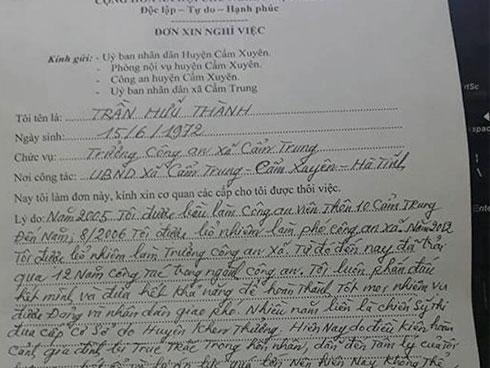 CỘNG HÒA XÃ HỘI CHỦ NGHĨA
Độc lập – Tự do – Hạnh phúc
ĐƠN XIN NGHỈ VIỆC
Kính gửi: - Uỷ ban nhân dân Huyện Cẩm Xuyên.
- Phòng nội vụ huyện Cẩm Xuyên.
- Công an huyện Cẩm Xuyên.
- Uỷ ban nhân dân xã Cẩm Trung
Tôi tên là: TRẦN HỮU THÀNH
Ngày sinh: 15/6/1972
Chức vụ: Trưởng Công an xã Cẩm Trung
Nơi công tác: UBND Xã Cẩm Trung - Cẩm Xuyên - Hà Tĩnh
Nay tôi làm đơn này, kính xin cơ quan các cấp cho tôi được thôi việc.
Lý do: Năm 2005 Tôi được bầu làm Công an viên Thôn 10 Cẩm Trung
Đến Năm 8/2006 Tôi được bổ nhiệm làm phó công an xã. Năm 2012
Tôi được bổ nhiệm làm Trưởng Công an Xã. Từ đó đến nay đã trải
qua 12 Năm công tác trong ngành công an. Tôi luôn phấn đấu
hết mình và đưa hết khả năng để hoàn thành Tốt mọi nhiệm vụ
được Đảng và nhân dân giao phó. Nhiều năm liền là chiến Sỹ thi
đua cấp cơ Sở do Huyện khen Thưởng. Hiện Nay do điều kiện hoàn
cảnh gia đình bị Trục Trặc Trong hôn nhân, dẫn đến Tâm lý của
Nên hiện Nay không Thể